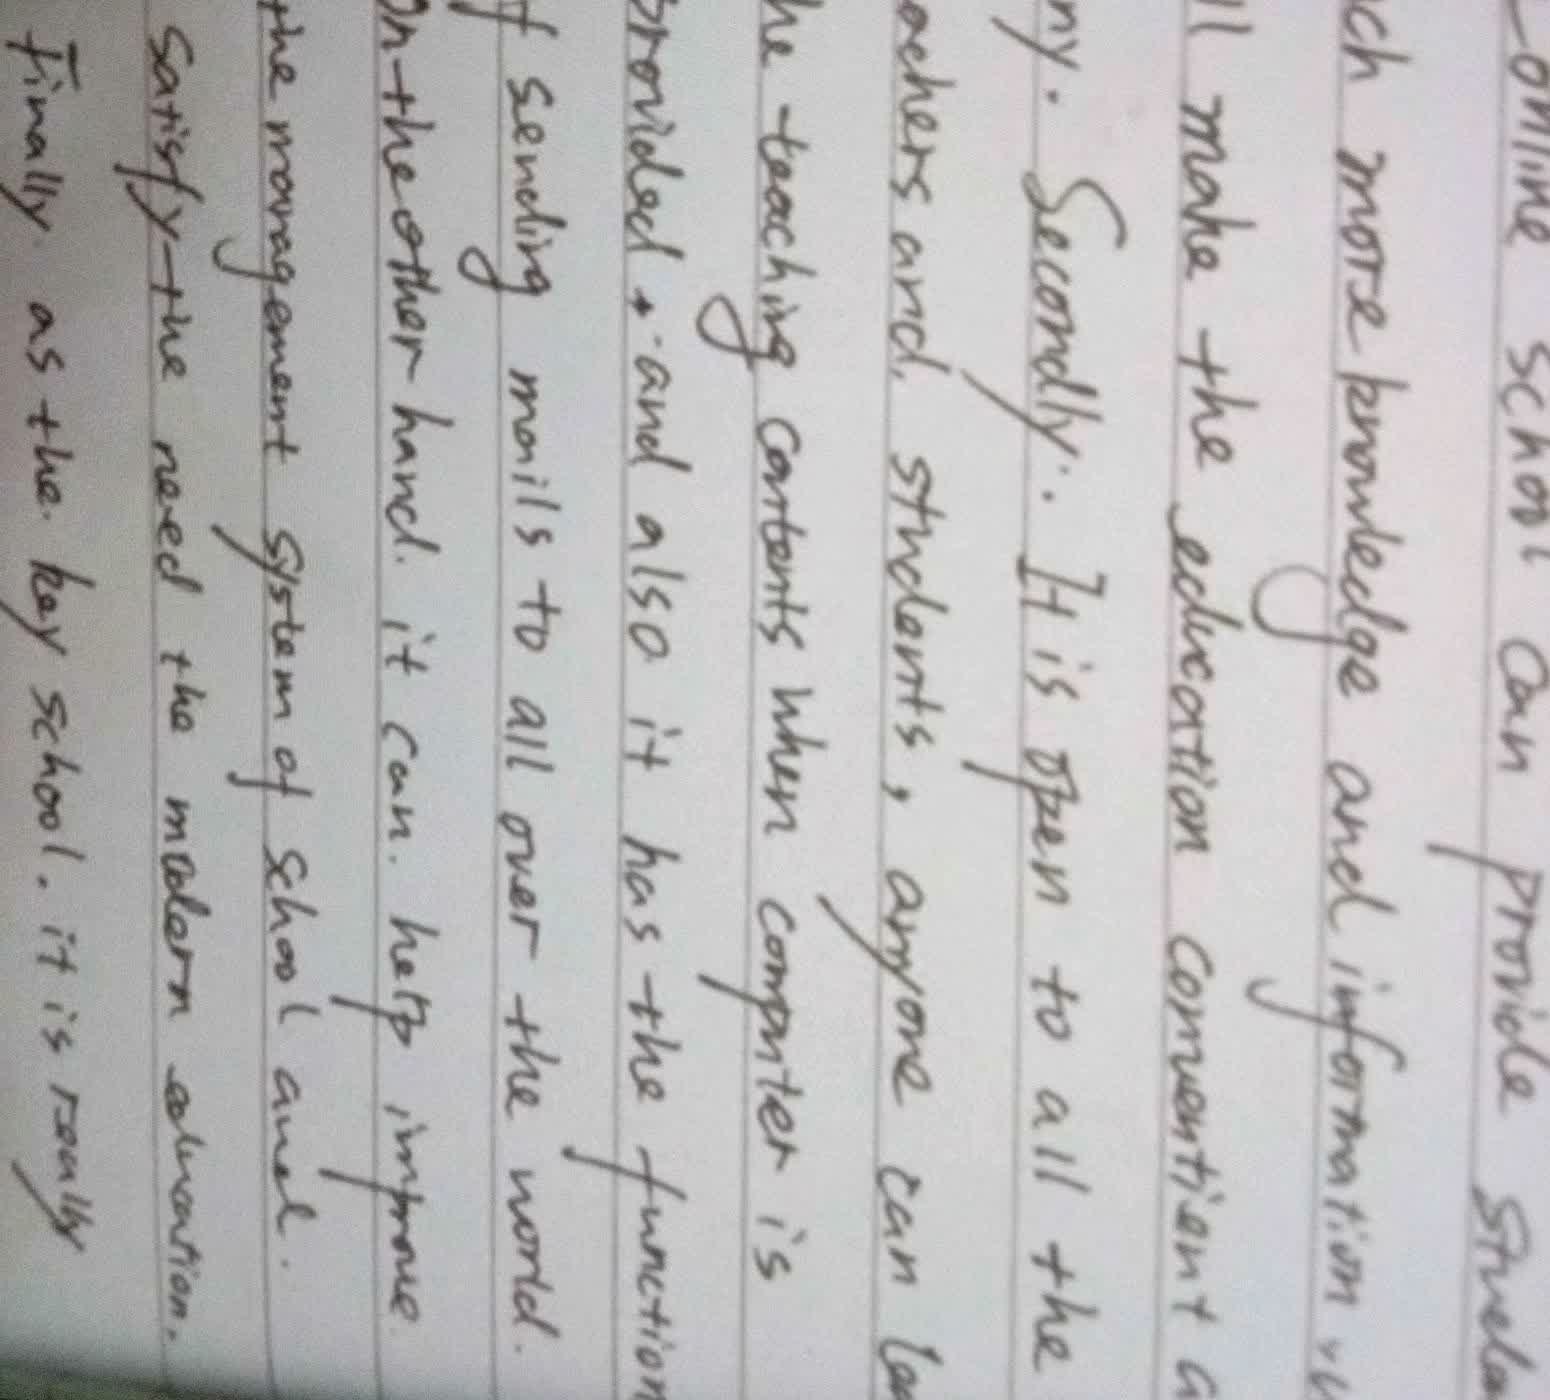 online school can provide stude
ch more knowledge and information w
ll make the education conventient a
ny. Secondly. It is open to all the
achers and, students, anyone can lea
he teaching contents when computer is
provided, and also it has the function
f sending mails to all over the world.
On the other hand. it can. help improve
the management system of school and.
satisfy the need the modern education.
Finally. as the. key school. it is really